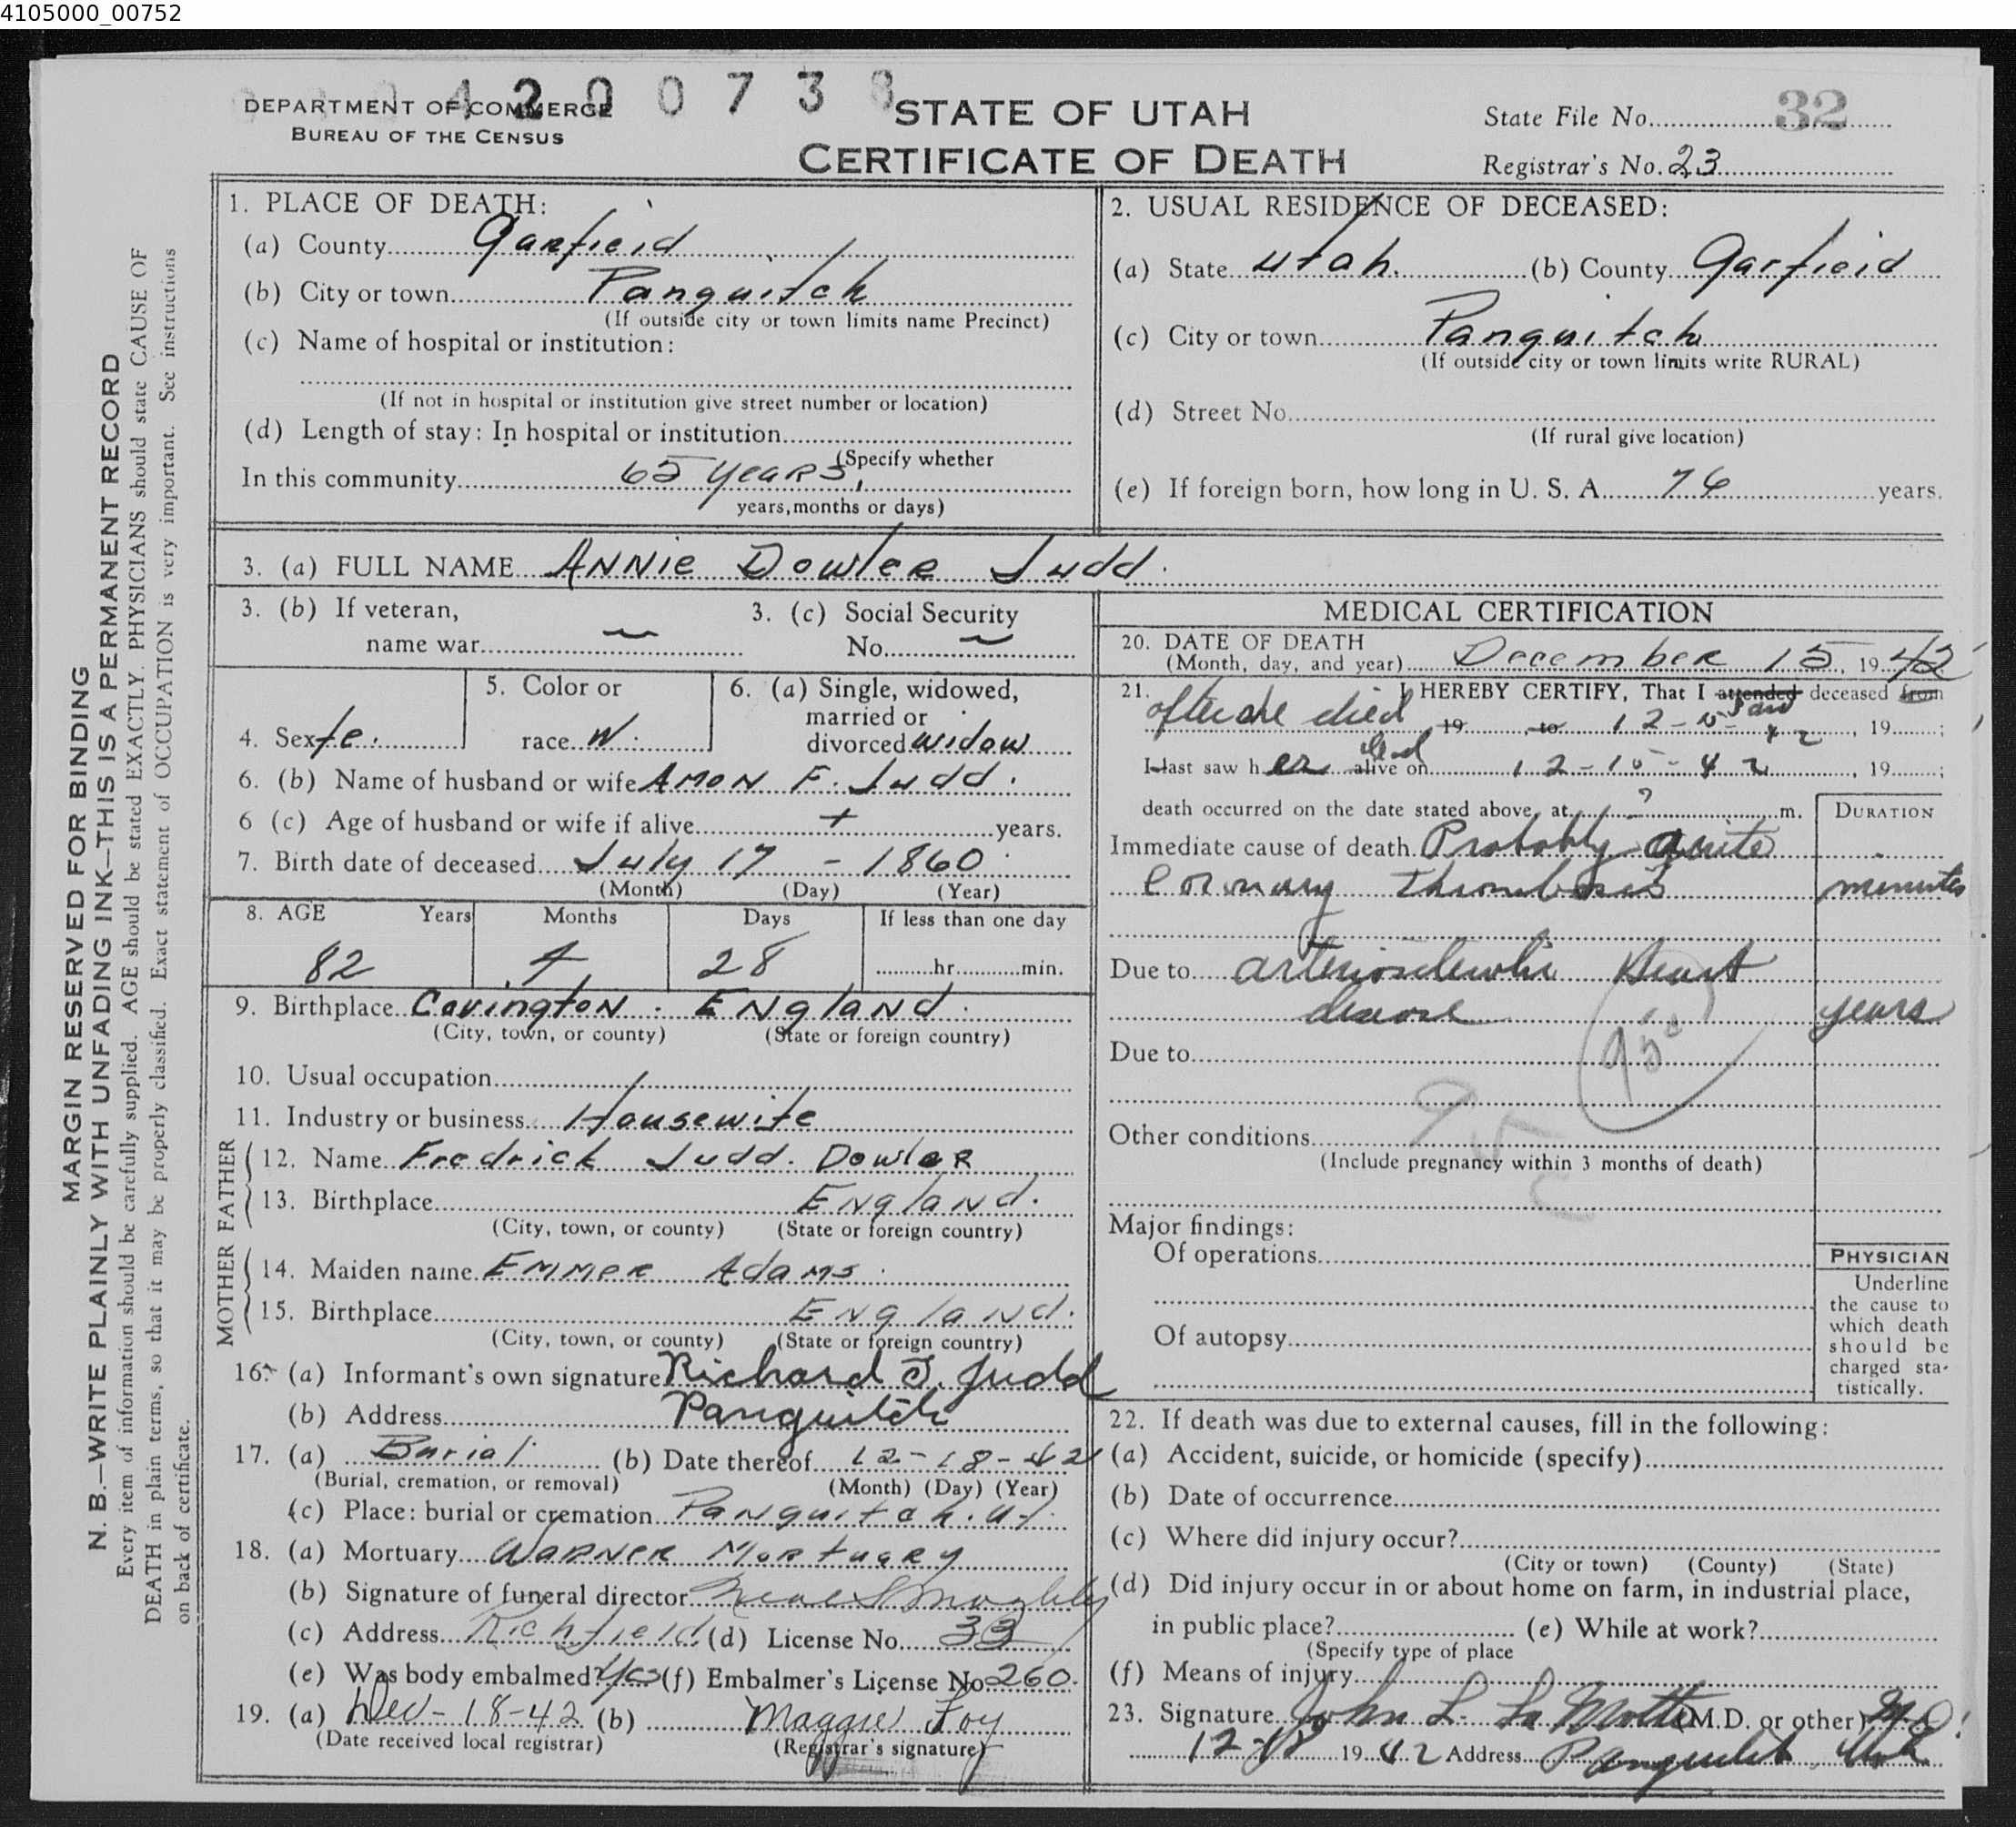 4105000_00752
4 2 0 0 7 3 8
DEPARTMENT OF COMMERCE
BUREAU OF THE CENSUS
STATE OF UTAH
CERTIFICATE OF DEATH
State File No. 32
Registrar's No. 23
1. PLACE OF DEATH:
(a) County Garfield
(b) City or town Panguitch
(If outside city or town limits name Precinct)
(c) Name of hospital or institution:
(If not in hospital or institution give street number or location)
(d) Length of stay: In hospital or institution
(Specify whether
In this community 65 years,
years, months or days)
2. USUAL RESIDENCE OF DECEASED:
(a) State Utah (b) County Garfield
(c) City or town Panguitch
(If outside city or town limits write RURAL)
(d) Street No.
(If rural give location)
(e) If foreign born, how long in U. S. A. 76 years.
3. (a) FULL NAME Annie Dowler Judd.
3. (b) If veteran,
name war —
3. (c) Social Security
No. —
4. Sex fe.
5. Color or
race W.
6. (a) Single, widowed,
married or
divorced widow
6. (b) Name of husband or wife Amon F. Judd.
6 (c) Age of husband or wife if alive + years.
7. Birth date of deceased July 17 - 1860
(Month) (Day) (Year)
8. AGE Years Months Days If less than one day
82 4 28 hr. min.
9. Birthplace Covington. England.
(City, town, or county) (State or foreign country)
10. Usual occupation
11. Industry or business Housewife
FATHER
12. Name Fredrick Judd. Dowler
13. Birthplace England.
(City, town, or county) (State or foreign country)
MOTHER
14. Maiden name Emmer Adams.
15. Birthplace England.
(City, town, or county) (State or foreign country)
16. (a) Informant's own signature Richard S. Judd
(b) Address Panguitch
17. (a) Burial (b) Date thereof 12-18-42
(Burial, cremation, or removal) (Month) (Day) (Year)
(c) Place: burial or cremation Panguitch. Ut.
18. (a) Mortuary Warner Mortuary
(b) Signature of funeral director
(c) Address Richfield (d) License No. 33
(e) Was body embalmed? Yes (f) Embalmer's License No. 260.
19. (a) Dec-18-42 (b) Maggie Foy
(Date received local registrar) (Registrar's signature)
MEDICAL CERTIFICATION
20. DATE OF DEATH
(Month, day, and year) December 15, 1942
21. I HEREBY CERTIFY, That I attended deceased from
saw
after she died 19 , to 12-15-42, 19 ;
I last saw her alive on 12-15-42, 19 ;
dead
death occurred on the date stated above, at ? m.
DURATION
Immediate cause of death Probably acute
coronary thrombosis minutes
Due to arteriosclerotic heart
disease years
Due to
95
Other conditions
(Include pregnancy within 3 months of death)
Major findings:
Of operations
Of autopsy
PHYSICIAN
Underline
the cause to
which death
should be
charged sta-
tistically.
22. If death was due to external causes, fill in the following:
(a) Accident, suicide, or homicide (specify)
(b) Date of occurrence
(c) Where did injury occur?
(City or town) (County) (State)
(d) Did injury occur in or about home on farm, in industrial place,
in public place? (e) While at work?
(Specify type of place
(f) Means of injury
23. Signature John L. La Motte (M.D. or other) M.D.
12-18 1942 Address Panguitch Utah
MARGIN RESERVED FOR BINDING
N. B.—WRITE PLAINLY WITH UNFADING INK—THIS IS A PERMANENT RECORD
Every item of information should be carefully supplied. AGE should be stated EXACTLY. PHYSICIANS should state CAUSE OF
DEATH in plain terms, so that it may be properly classified. Exact statement of OCCUPATION is very important. See instructions
on back of certificate.